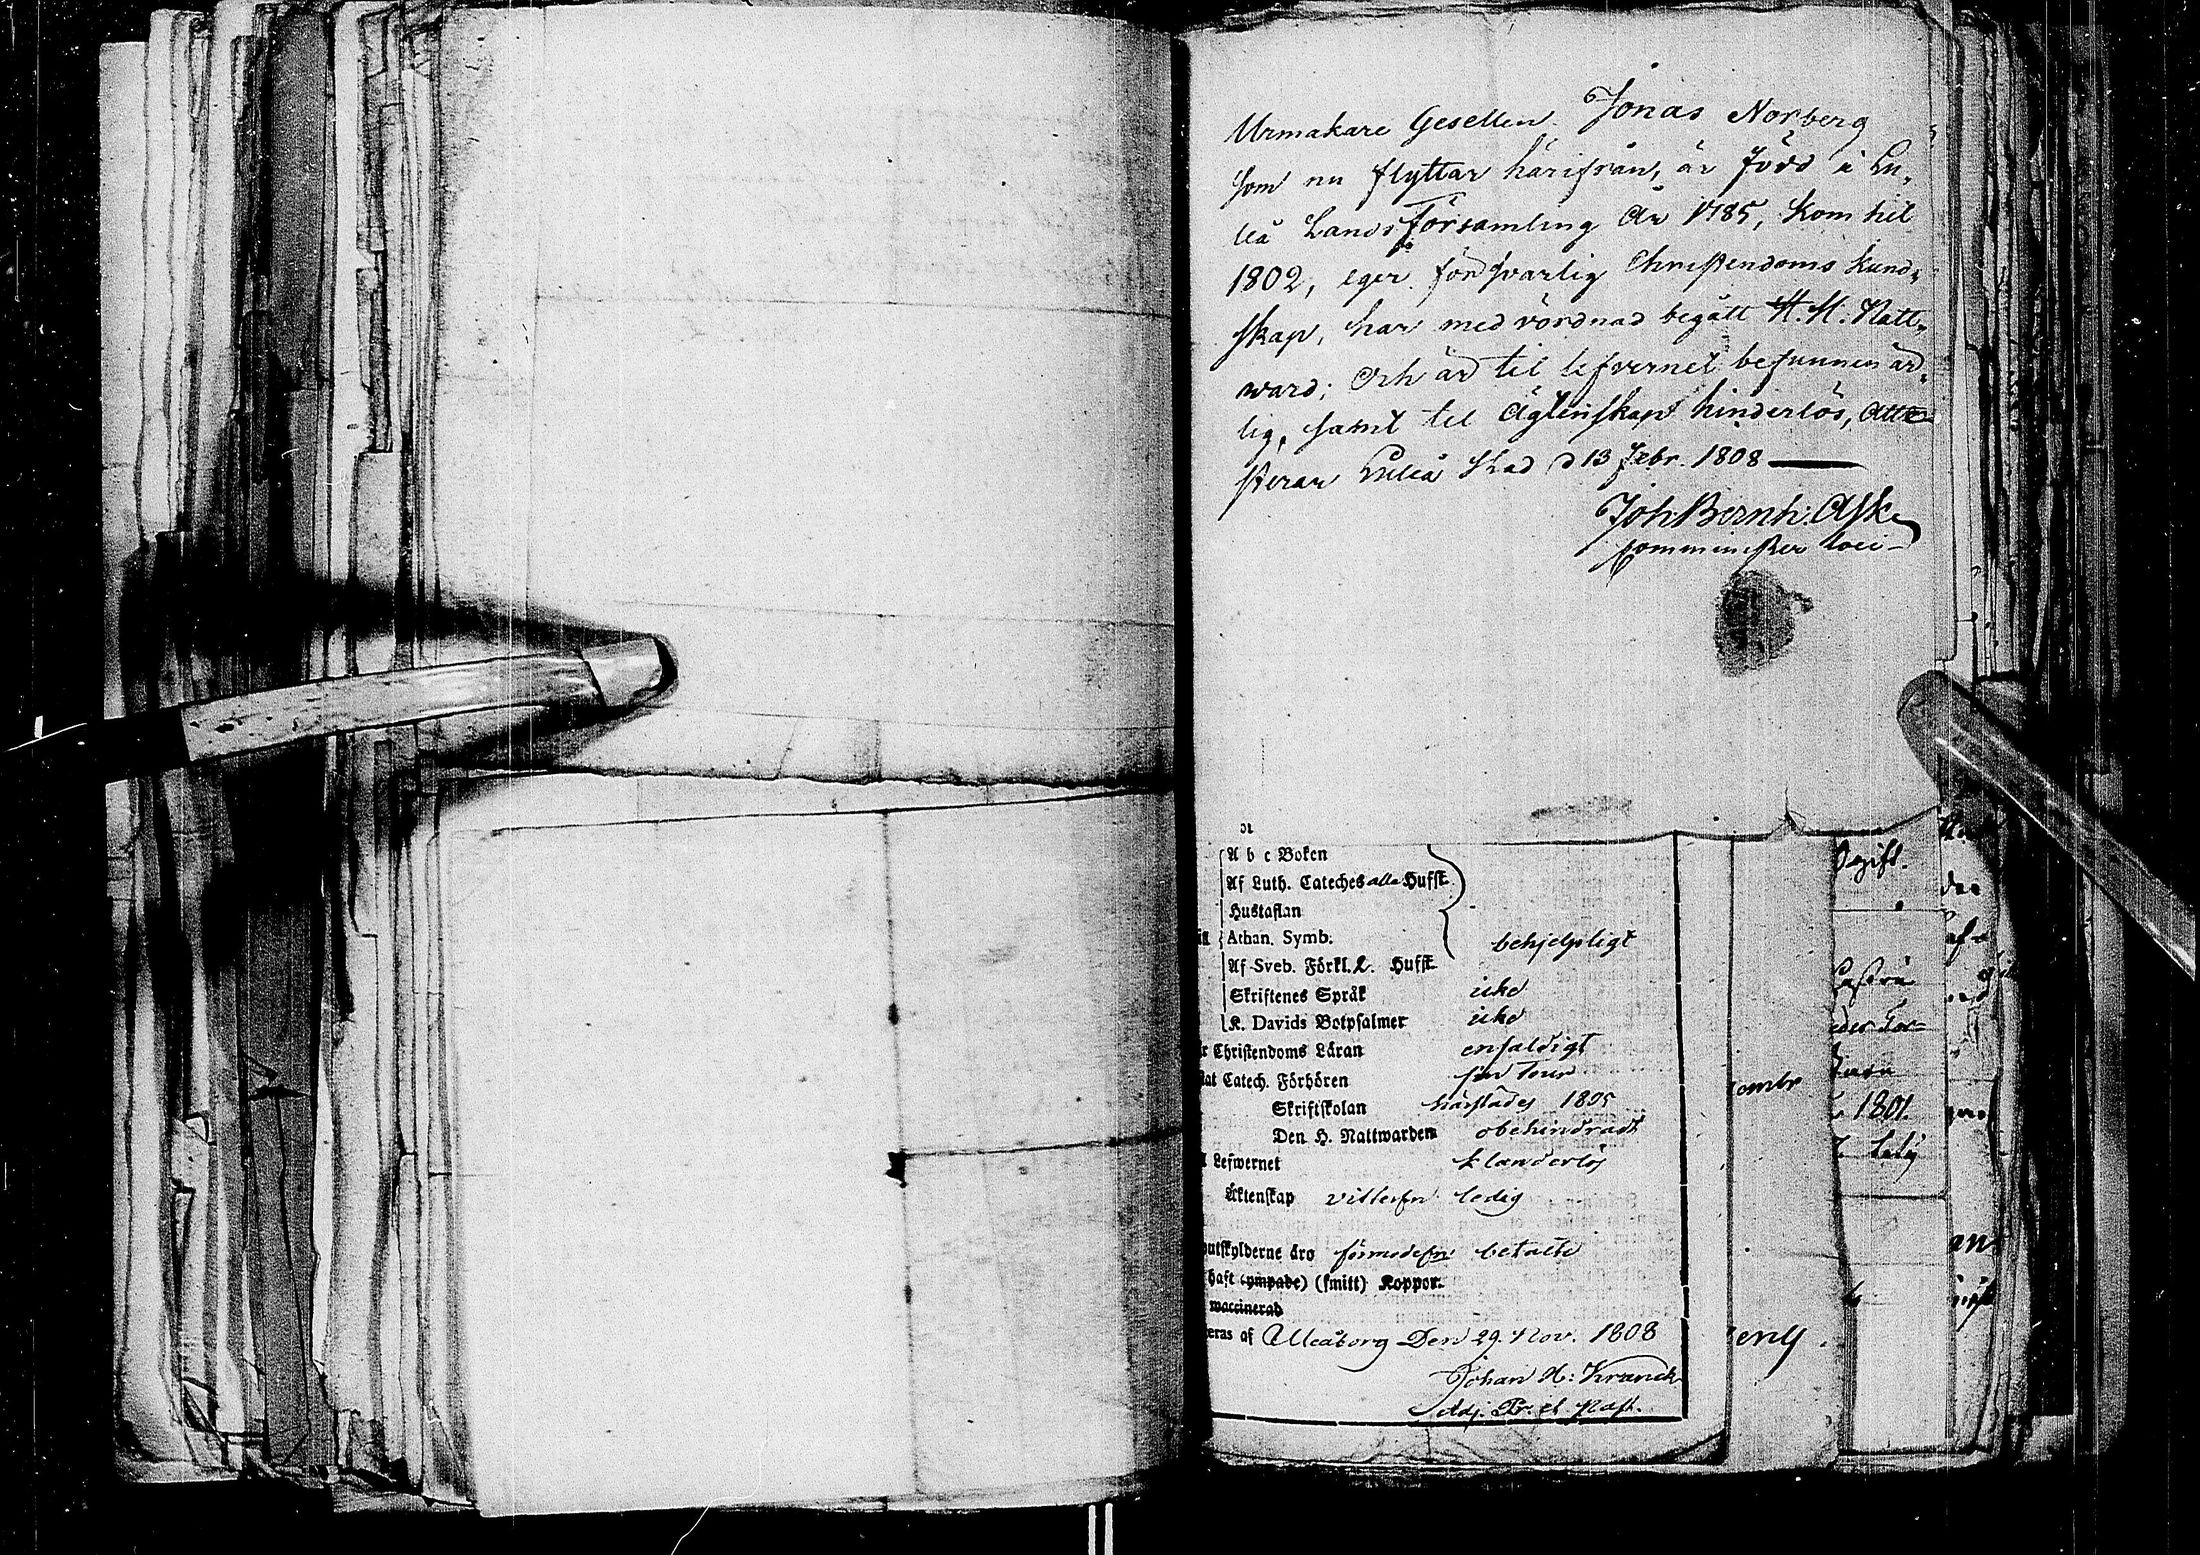 Urmakare Gesellen Jonas Norberg
som nu flyttar härifrån, är född i Lu-
leå Lands Församling År 1785, kom hit
1802, eger försvarlig Christendoms kund-
skap, har med vördnad begått H. H. Natt-
ward; Och är til lefvernet befunnen är-
lig, samt til Ägtenskap hinderlös, Atte-
sterar Luleå Stad d 13 Febr. 1808
Joh Bernh: Ask
comminister loci
A b c Boken
Af Luth. Cateches alla Hufst.
Hustaflan
Athan. Symb. behjelpligt
Af Sveb. Förkl. 2. Hufst.
Skriftenes Språk icke
K. Davids Botpsalmer icke
r Christendoms Läran enfaldigt
tat Catech. Förhören
Skriftskolan härstädes 1805
Den H. Nattwarden obehindradt
Lefwernet klanderlös
Äktenskap ledig
utskylderne äro betalte
haft (ympade) (smitt) Koppor.
waccinerad
eras af Uleåborg Den 29. Nov. 1808
Johan H: Kranck
Adj. Pr. et Past.
Ogift.
1801.